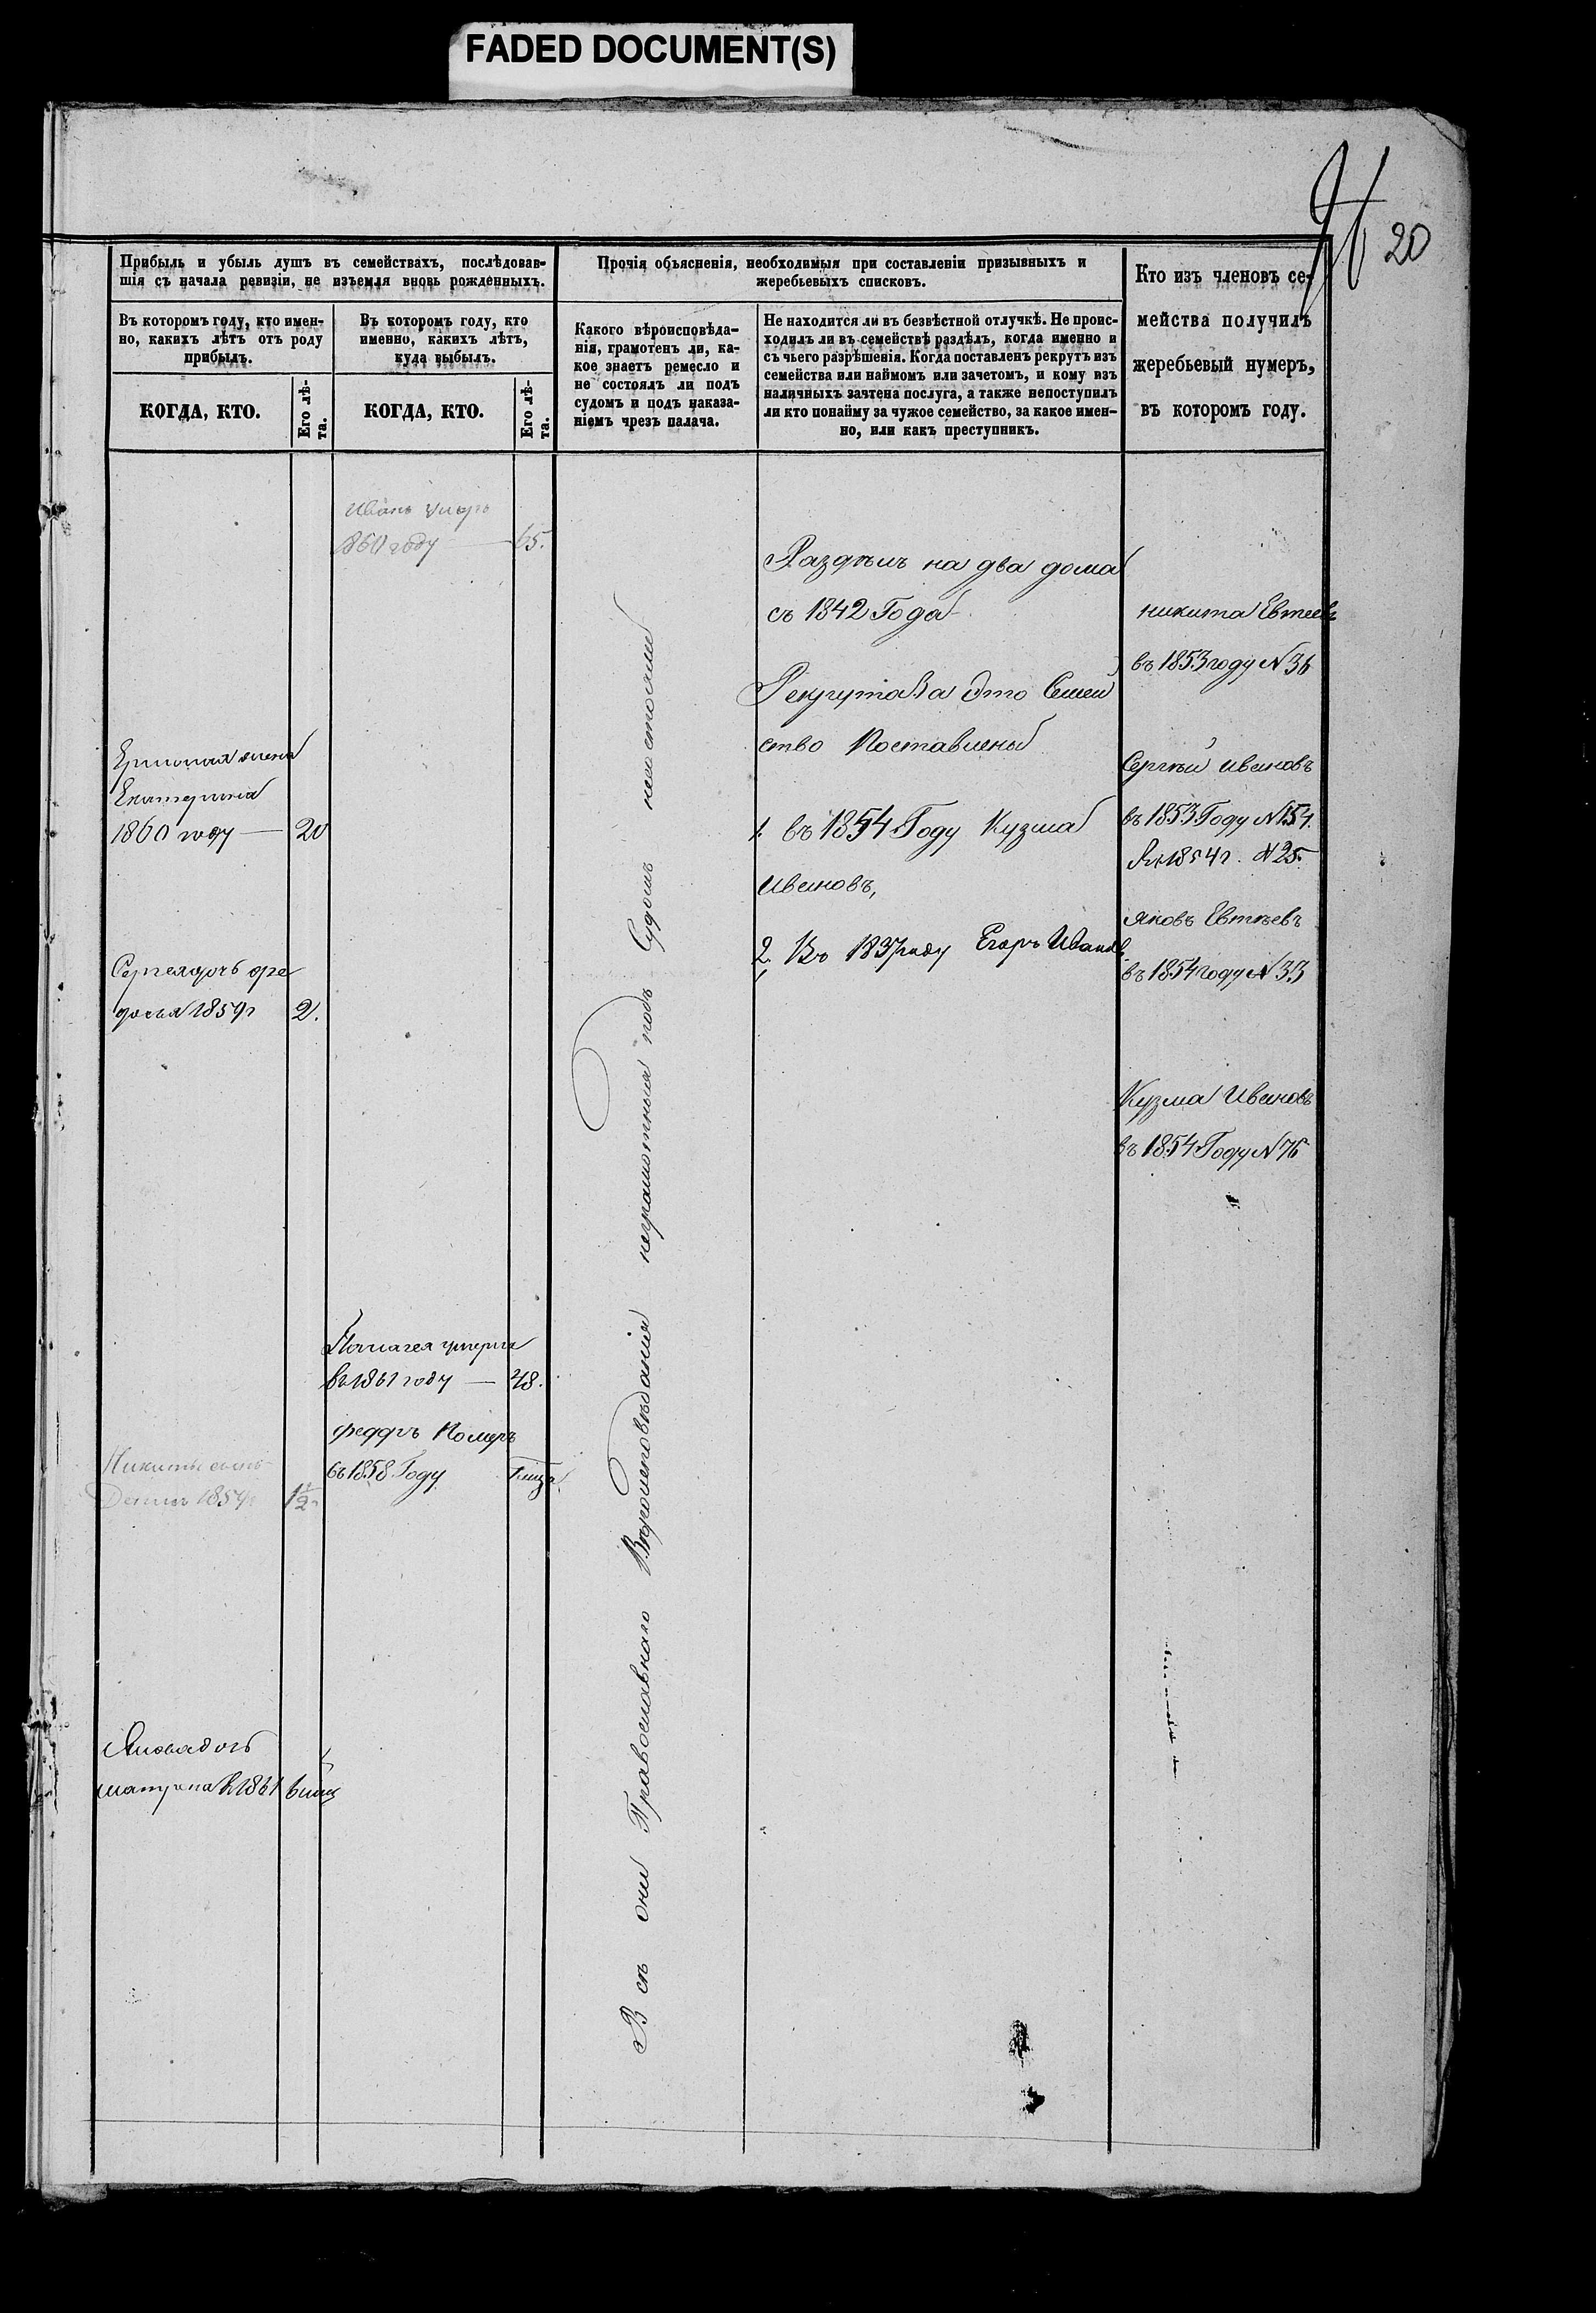 FADED DOCUMENT(S)
20
Прибыль и убыль душъ въ семействахъ, послѣдовав-
шія съ начала ревизіи, не изъемля вновь рожденныхъ.
Въ которомъ году, кто имен-
но, какихъ лѣтъ отъ роду
прибылъ.
КОГДА, КТО.
Его лѣ-
та.
Въ которомъ году, кто
именно, какихъ лѣтъ,
куда выбылъ.
КОГДА, КТО.
Его лѣ-
та.
Прочія объясненія, необходимыя при составленіи призывныхъ и
жеребьевыхъ списковъ.
Какого вѣроисповѣда-
нія, грамотенъ ли, ка-
кое знаетъ ремесло и
не состоялъ ли подъ
судомъ и подъ наказа-
ніемъ чрезъ палача.
Не находится ли въ безвѣстной отлучкѣ. Не проис-
ходилъ ли въ семействѣ раздѣлъ, когда именно и
съ чьего разрѣшенія. Когда поставленъ рекрутъ изъ
семейства или наймомъ или зачетомъ, и кому изъ
наличныхъ зачтена послуга, а также непоступилъ
ли кто понайму за чужое семейство, за какое имен-
но, или какъ преступникъ.
Кто изъ членовъ се-
мейства получилъ
жеребьевый нумеръ,
въ которомъ году.
Екатерина
1860 году — 20
Сергеядочь
1859г 2.
Никиты сынъ
1859г 1 1/2
Яковадочь
матрена 1861
Иванъ умеръ
1860 году — 65.
Палагея умерла
въ 1861 году — 48.
феддръ Померъ
въ 1858 Году
Всѣ они Православнаго Вѣроисповѣданія неграмотныя подъ Судомъ несостояли
Раздѣлъ на два дома
съ 1842 Года
Рекрута За Это Семей
ство Поставлены
1. въ 1854 Году Кузма
Ивановъ,
2, Въ 1837 году Егоръ Иванов
никита Евтеевъ
въ 1853 году N 36
Сергѣй ивановъ
въ 1853 Году N 154.
1854 г. N 25.
яковъ Евтѣевъ
въ 1854 году N 33
Кузма Ивановъ
въ 1854 Году N 76